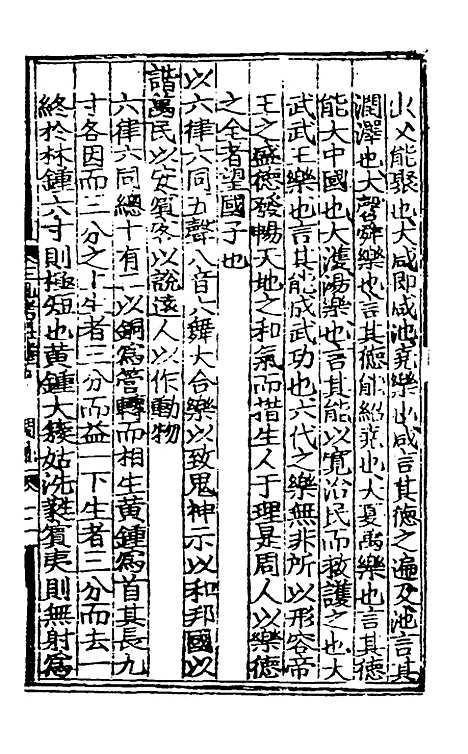 出又能聚也大咸即咸池堯樂也咸言其德之遍及池言其
潤澤也大磬舜樂也言其德能紹堯也大夏禹樂也言其德
能大中國也大濩湯樂也言其能以寬治民而救護之也大
武武王樂也言其能成武功也六代之樂無非所以形容帝
王之盛德發暢天地之和氣而措生人于理是周人以樂德
之全者望國子也
以六律六同五聲八音六舞大合樂以致鬼神示以和邦國以
諧萬民以安賓客以說遠人以作動物
六律六同總十有二以銅為管轉而相生黃鍾為首其長九
寸各因而三分之上生者三分而益一下生者三分而去一
終於林鍾六寸則極短也黃鍾大簇姑洗蕤賓夷則無射為